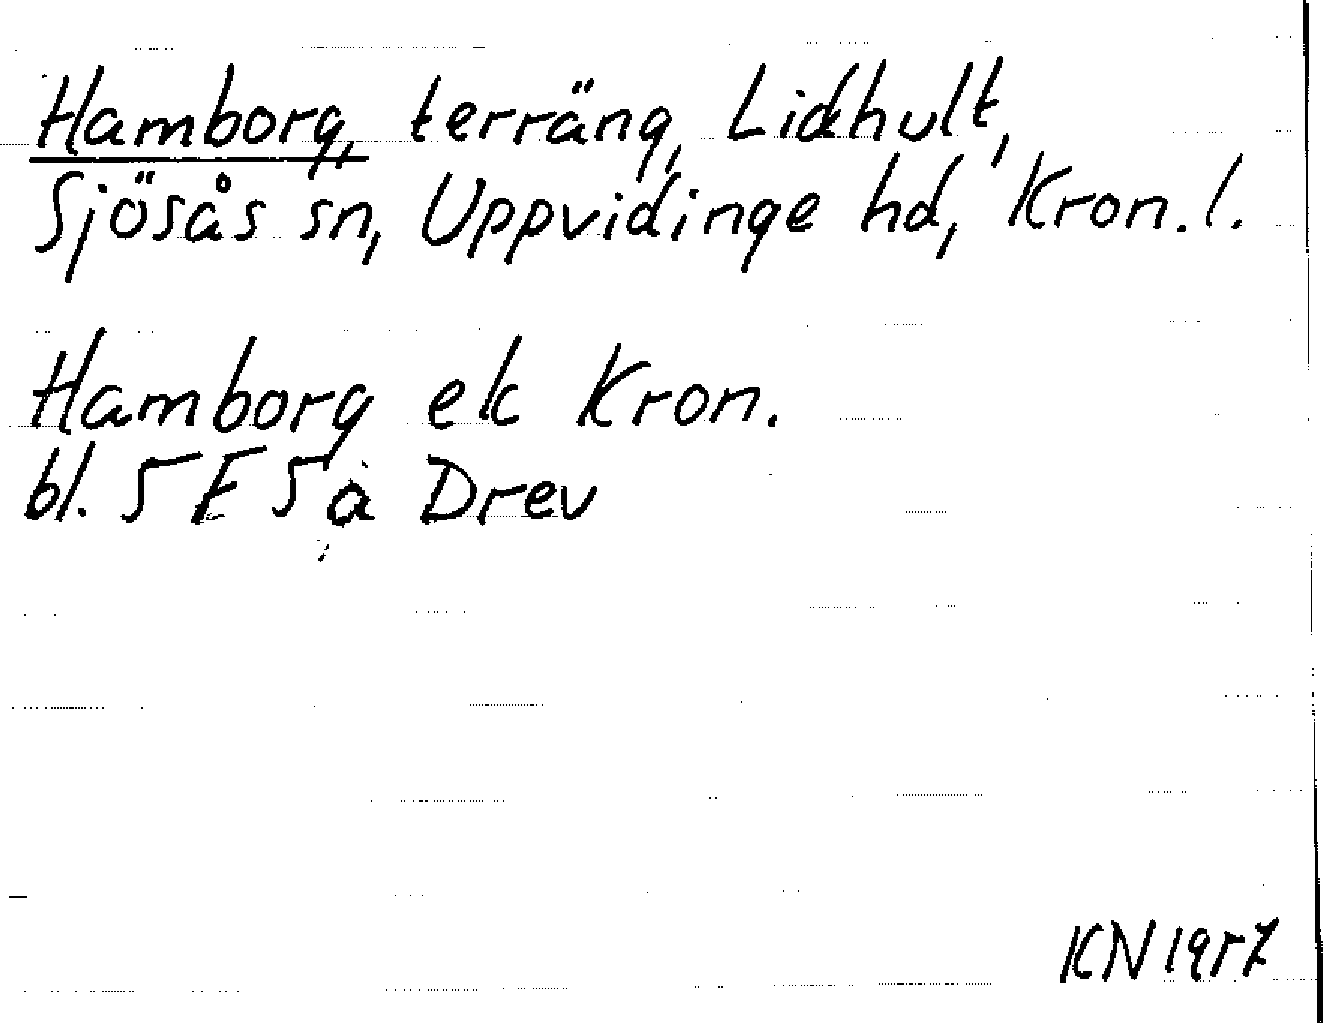 Hamborg, terräng, Lidhult,
Sjösås sn, Uppvidinge hd, Kron. l.
Hamborg ek Kron.
bl. 5 E 5 a Drev
KN 1957